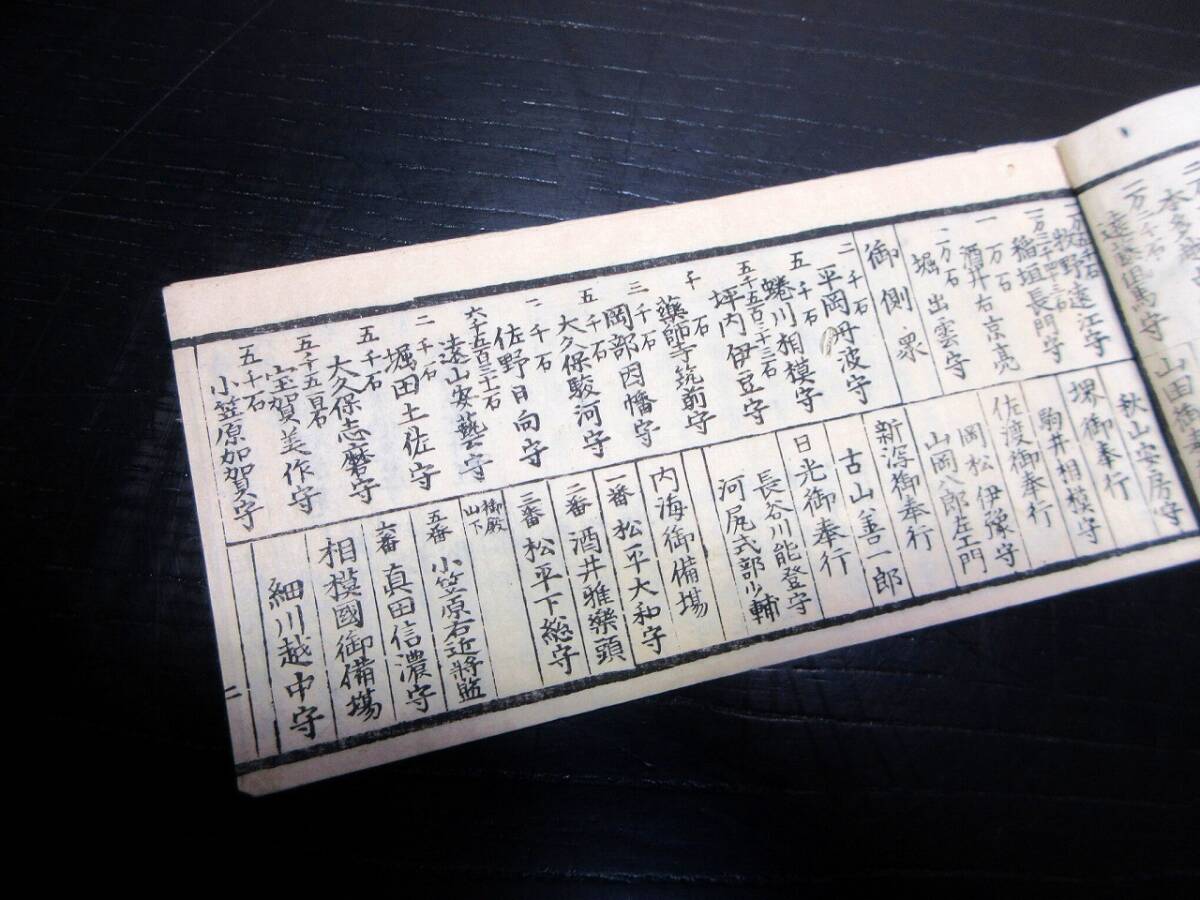 本多越
一万二千石
遠藤但馬守
牧野遠江守
一万三千四三石
稲垣長門守
一万石
酒井右京亮
一万石
堀出雲守
御側衆
二千石
平岡丹波守
五千石
蜷川相模守
五千五百三十三石
坪内伊豆守
千石
薬師寺筑前守
三千石
岡部因幡守
五千石
大久保駿河守
一千石
佐野日向守
六千五百三十石
遠山安藝守
二千石
堀田土佐守
五千石
大久保志摩守
五千五百石
室賀美作守
五千石
小笠原加賀守
山田
秋山安房守
堺御奉行
駒井相模守
佐渡御奉行
岡松伊豫守
山岡八郎左エ門
新潟御奉行
古山善一郎
日光御奉行
長谷川能登守
河尻式部少輔
内海御備場
一番 松平大和守
二番 酒井雅樂頭
三番 松平下総守
御殿山下
五番 小笠原右近将監
六番 真田信濃守
相模國御備場
細川越中守
二